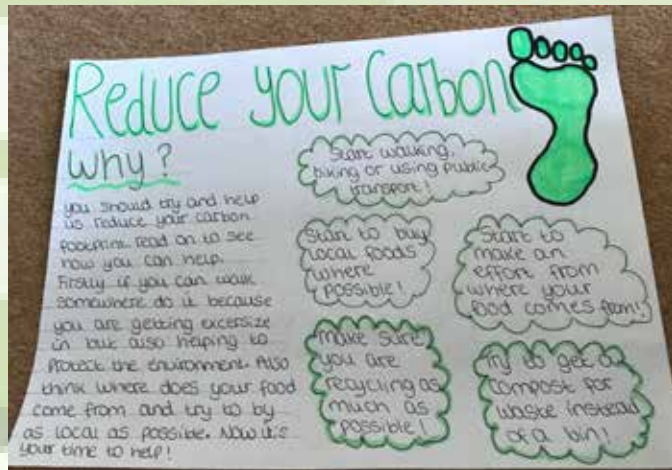 Reduce your Carbon
Why?
you should try and help
us reduce your carbon
footprint. read on to see
how you can help.
Firstly if you can walk
somewhere do it because
you are getting excersize
in but also helping to
Protect the environment. Also
think where does your food
come from and try to by
as local as possible. Now it's
your time to help!
Start walking,
biking or using public
transport!
Start to buy
local foods
where
possible!
Start to
make an
effort from
where your
food comes from!
make sure
you are
recycling as
much as
possible!
Try to get a
compost for
waste instead
of a bin!